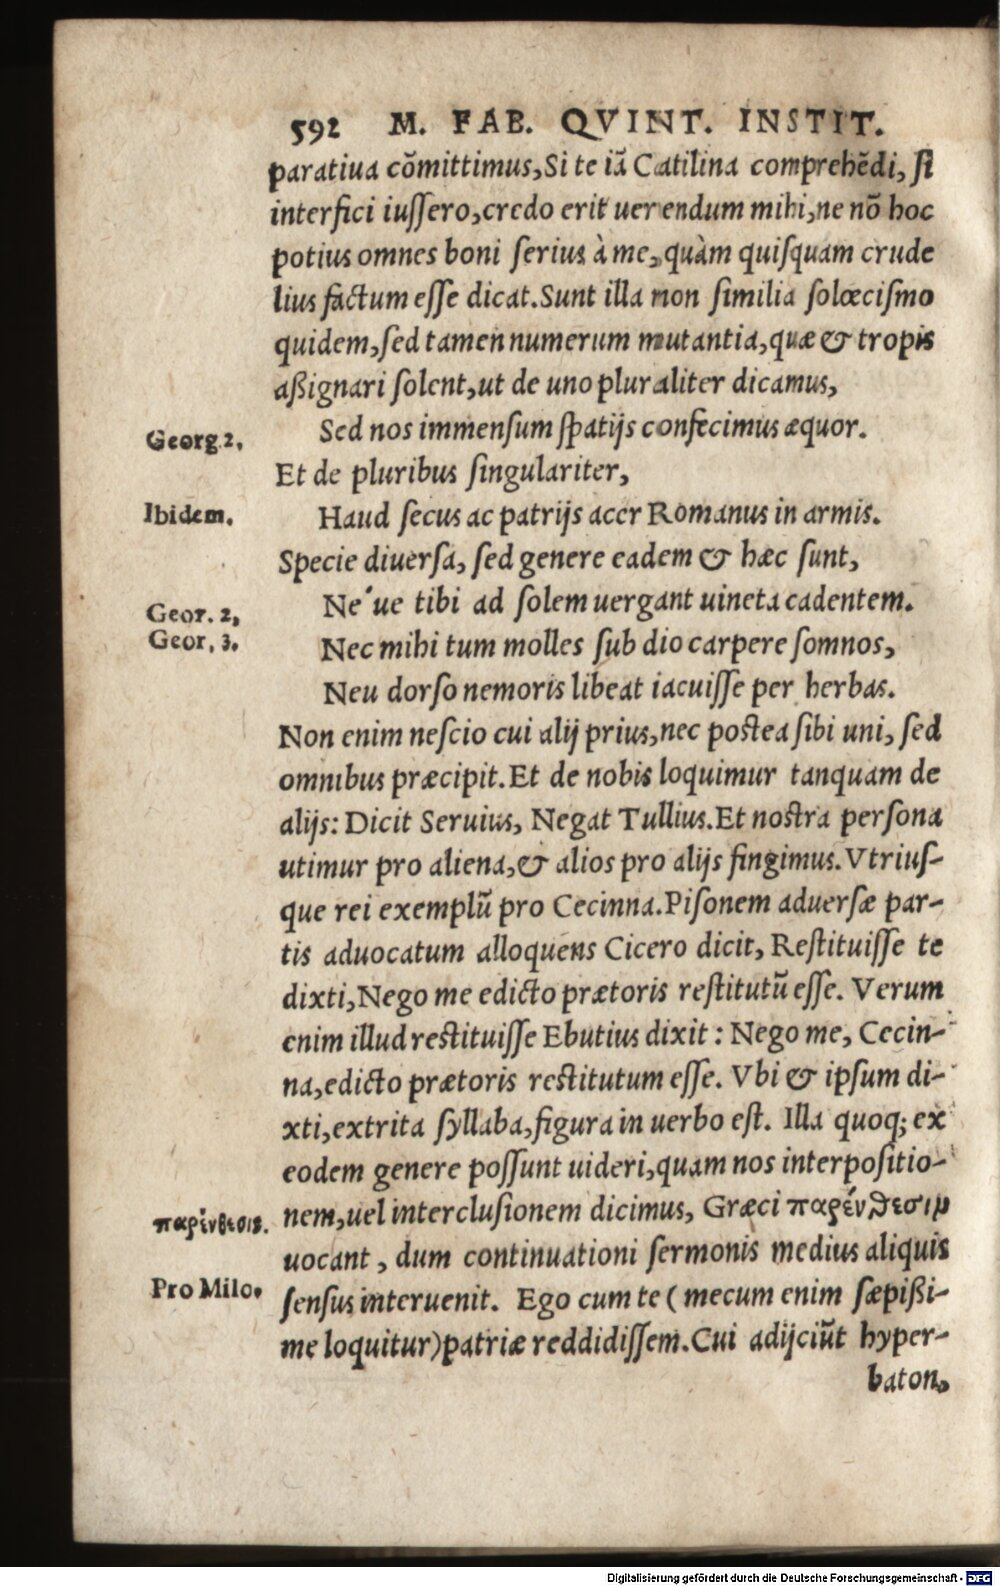 592 M. FAB. QVINT. INSTIT.
paratiua cõmittimus,Si te iã Catilina comprehẽdi, ſi
interfici iuſſero,credo erit uerendum mihi,ne nõ hoc
potius omnes boni ſerius à me,quàm quiſquam crude
lius factum eſſe dicat.Sunt illa non ſimilia ſolœciſmo
quidem,ſed tamen numerum mutantia,quæ & tropis
aßignari ſolent,ut de uno pluraliter dicamus,
Georg.2. Sed nos immenſum ſpatijs confecimus æquor.
Et de pluribus ſingulariter,
Ibidem. Haud ſecus ac patrijs acer Romanus in armis.
Specie diuerſa, ſed genere eadem & hæc ſunt,
Geor. 2, Ne'ue tibi ad ſolem uergant uineta cadentem.
Geor, 3. Nec mihi tum molles ſub dio carpere ſomnos,
Neu dorſo nemoris libeat iacuiſſe per herbas.
Non enim neſcio cui alij prius,nec poſtea ſibi uni, ſed
omnibus præcipit.Et de nobis loquimur tanquam de
alijs: Dicit Seruius, Negat Tullius.Et noſtra perſona
utimur pro aliena,& alios pro alijs fingimus.Vtriuſ-
que rei exemplũ pro Cecinna.Piſonem aduerſæ par-
tis aduocatum alloquens Cicero dicit, Reſtituiſſe te
dixti,Nego me edicto prætoris reſtitutũ eſſe. Verum
enim illud reſtituiſſe Ebutius dixit : Nego me, Cecin-
na,edicto prætoris reſtitutum eſſe. Vbi & ipſum di-
xti,extrita ſyllaba,figura in uerbo eſt. Illa quoq; ex
eodem genere poſſunt uideri,quam nos interpoſitio-
παρένθεσις. nem,uel intercluſionem dicimus, Græci παρένθεσιμ
uocant , dum continuationi ſermonis medius aliquis
Pro Milo. ſenſus interuenit. Ego cum te ( mecum enim ſæpißi-
me loquitur)patriæ reddidiſſem.Cui adijciũt hyper-
baton,
Digitalisierung gefördert durch die Deutsche Forschungsgemeinschaft - DFG